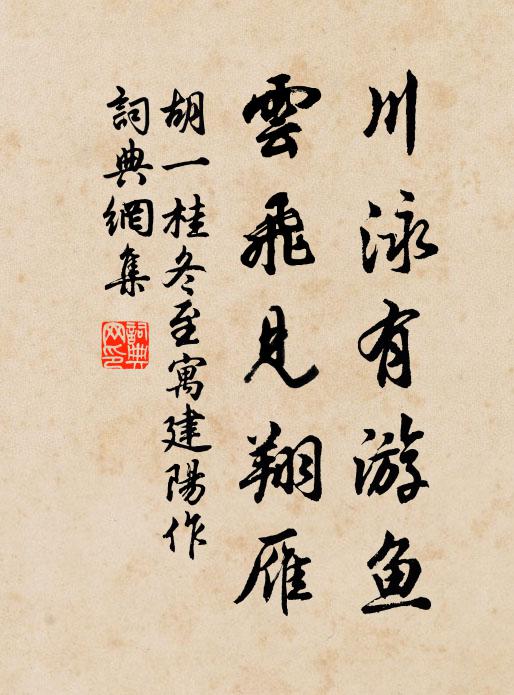 川泳有游鱼
雲飛見翔雁
胡一桂冬至寓建陽作
詞典網集
詞典网印